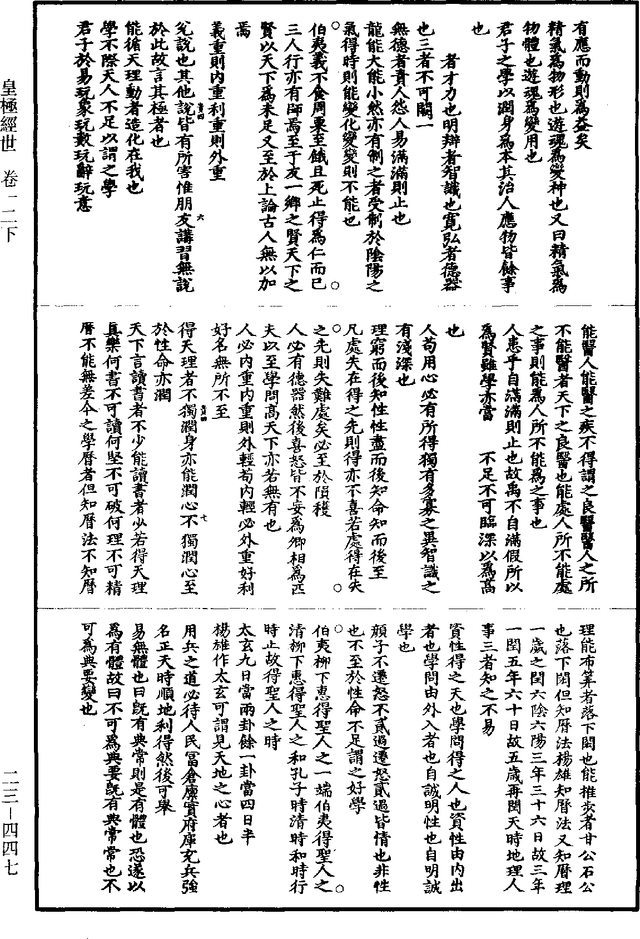 有應而動則為益矣
精氣為物形也遊魂為變神也又曰精氣為
物體也遊魂為變用也
君子之學以潤身為本其治人應物皆餘事
也
者才力也明辯者智識也寬弘者德器
也三者不可闕一
無德者責人怨人易滿滿則止也
龍能大能小然亦有制之者受制於陰陽之
氣得時則能變化變變則不能也
伯夷義不食周粟至餓且死止得為仁而已
三人行亦有師焉至于友一鄉之賢天下之
賢以天下為未足又至於上論古人無以加
焉
義重則内重利重則外重
兊說也其他說皆有所害惟朋友講習無說
於此故言其極者也
能循天理動者造化在我也
學不際天人不足以謂之學
君子於易玩象玩數玩辭玩意
能醫人能醫之疾不得謂之良醫醫人之所
不能醫者天下之良醫也能處人所不能處
之事則能為人所不能為之事也
人患乎自滿滿則止也故禹不自滿假所以
為賢雖學亦當 不足不可臨深以為高
也
人苟用心必有所得獨有多寡之異智識之
有淺深也
理窮而後知性性盡而後知命命知而後至
凡處失在得之先則得亦不喜若處得在失
之先則失難處矣必至於隕穫
人必有德器然後喜怒皆不妄為卿相為匹
夫以至學問高天下亦若無有也
人必内重内重則外輕苟内輕必外重好利
好名無所不至
得天理者不獨潤身亦能潤心不獨潤心至
於性命亦潤
天下言讀書者不少能讀書者少若得天理
真樂何書不可讀何堅不可破何理不可精
曆不能無差今之學曆者但知曆法不知曆
理能布筭者落下閎也能推步者甘公石公
也落下閎但知曆法楊雄知曆法又知曆理
一歲之閏六陰六陽三年三十六日故三年
一閏五年六十日故五歲再閏天時地理人
事三者知之不易
資性得之天也學問得之人也資性由内出
者也學問由外入者也自誠明性也自明誠
學也
顔子不遷怒不貳過遷怒貳過皆情也非性
也不至於性命不足謂之好學
伯夷柳下惠得聖人之一端伯夷得聖人之
清柳下惠得聖人之和孔子時清時和時行
時止故得聖人之時
太玄九日當兩卦餘一卦當四日半
楊雄作太玄可謂見天地之心者也
用兵之道必待人民富倉廩實府庫充兵強
名正天時順地利得然後可舉
易無體也曰旣有典常則是有體也恐遂以
為有體故曰不可為典要旣有典常常也不
可為典要變也
皇極經世 卷一二下
二三－四四七